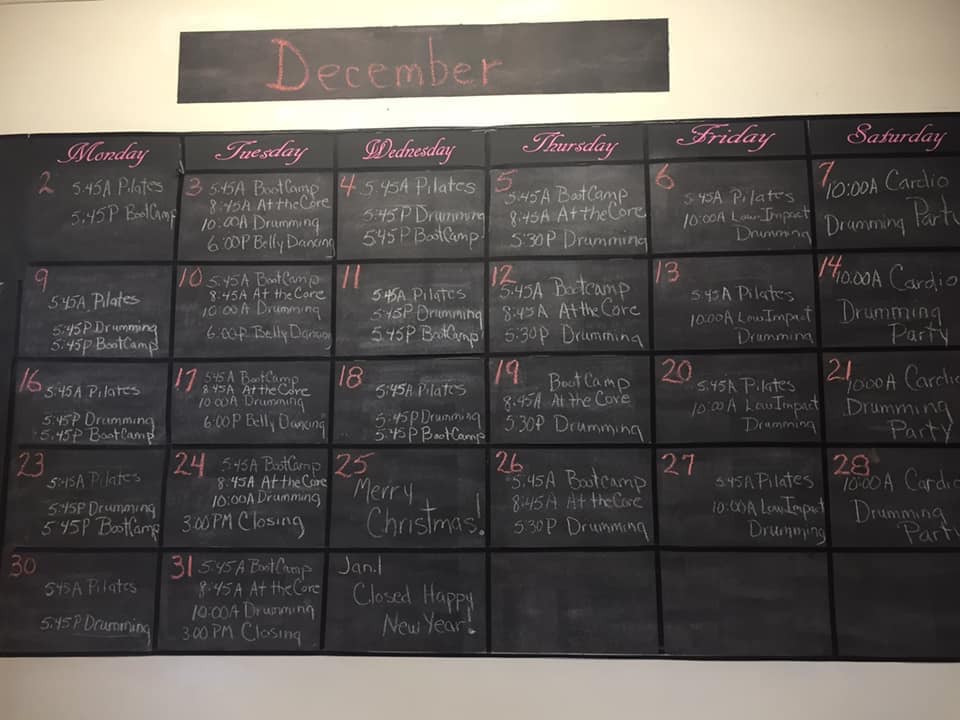 December
Monday Tuesday Wednesday Thursday Friday Saturday
2 5:45A Pilates
5:45P BootCamp
3 5:45A BootCamp
8:45A At the Core
10:00A Drumming
6:00P Belly Dancing
4 5:45A Pilates
5:45P Drumming
5:45P BootCamp
5
5:45A BootCamp
8:45A At the Core
5:30P Drumming
6
5:45A Pilates
10:00A Low Impact
Drumming
7
10:00A Cardio
Drumming Party
9
5:45A Pilates
5:45P Drumming
5:45P BootCamp
10 5:45A BootCamp
8:45A At the Core
10:00A Drumming
6:00P Belly Dancing
11
5:45A Pilates
5:45P Drumming
5:45P BootCamp
12
5:45A Bootcamp
8:45A At the Core
5:30P Drumming
13
5:45A Pilates
10:00A Low Impact
Drumming
14
10:00A Cardio
Drumming
Party
16
5:45A Pilates
5:45P Drumming
5:45P BootCamp
17 5:45A BootCamp
8:45A At the Core
10:00A Drumming
6:00P Belly Dancing
18
5:45A Pilates
5:45P Drumming
5:45P BootCamp
19 BootCamp
8:45A At the Core
5:30P Drumming
20
5:45A Pilates
10:00A Low Impact
Drumming
21
10:00A Cardio
Drumming
Party
23
5:45A Pilates
5:45P Drumming
5:45P BootCamp
24 5:45A BootCamp
8:45A At the Core
10:00A Drumming
3:00PM Closing
25
Merry
Christmas!
26
5:45A Bootcamp
8:45A At the Core
5:30P Drumming
27
5:45A Pilates
10:00A Low Impact
Drumming
28
10:00A Cardio
Drumming
Party
30
5:45A Pilates
5:45P Drumming
31 5:45A BootCamp
8:45A At the Core
10:00A Drumming
3:00PM Closing
Jan.1
Closed Happy
New Year!